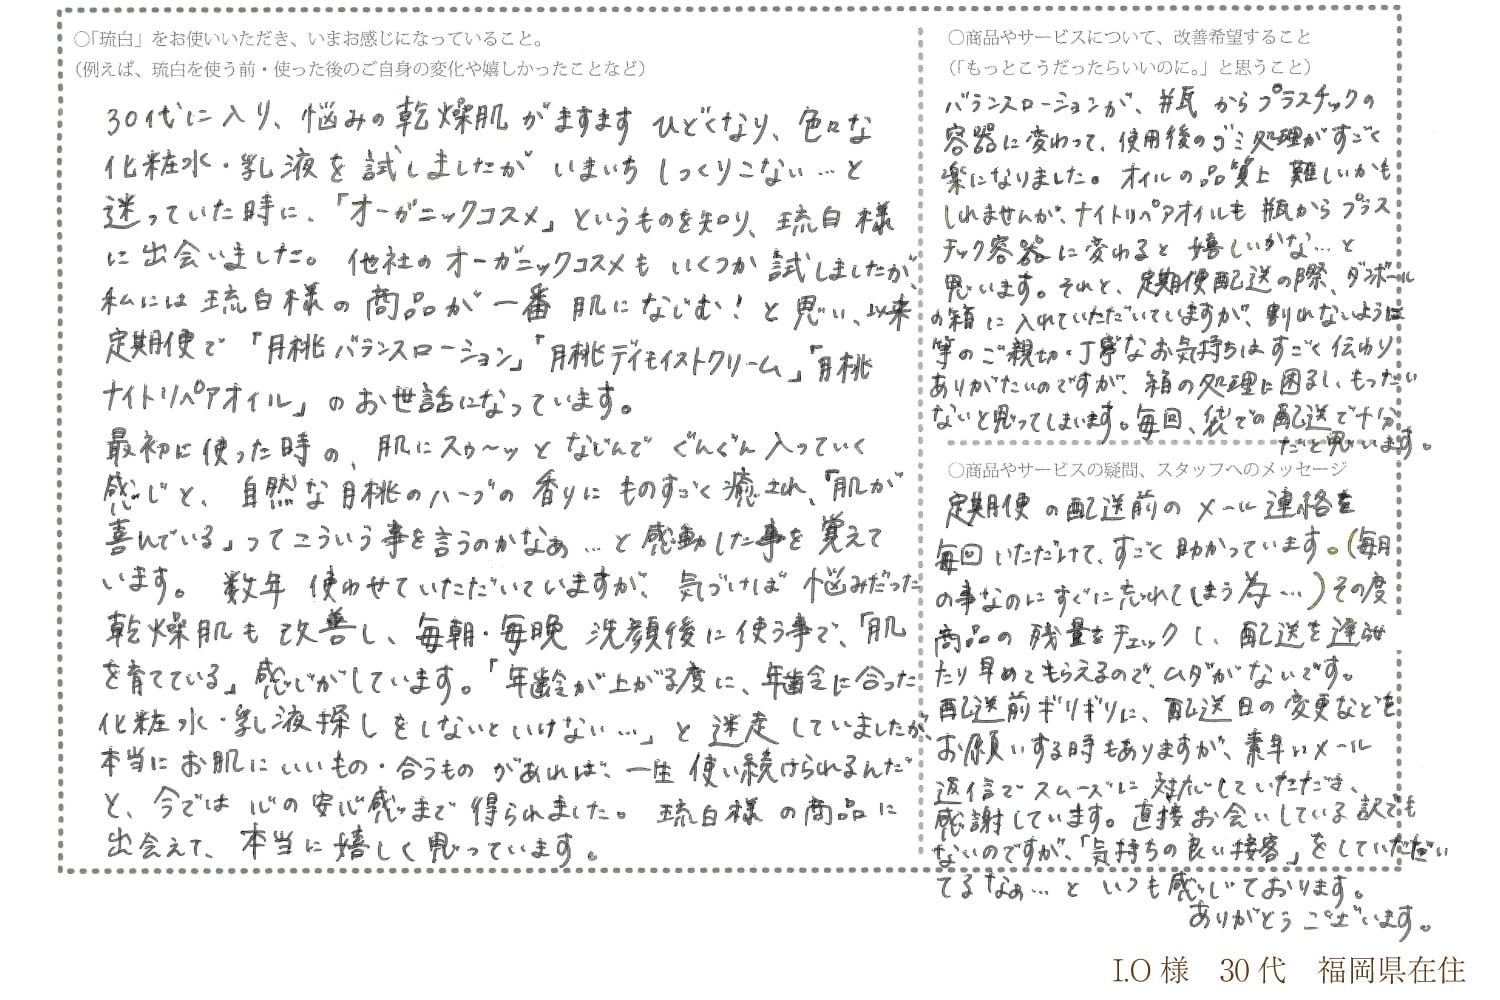 ○「琉白」をお使いいただき、いまお感じになっていること。
（例えば、琉白を使う前・使った後のご自身の変化や嬉しかったことなど）
30代に入り、悩みの乾燥肌がますますひどくなり、色々な
化粧水・乳液を試しましたがいまいちしっくりこない…と
迷っていた時に、「オーガニックコスメ」というものを知り、琉白様
に出会いました。他社のオーガニックコスメもいくつか試しましたが、
私には琉白様の商品が一番肌になじむ！と思い、以来
定期便で「月桃バランスローション」「月桃デイモイストクリーム」「月桃
ナイトリペアオイル」のお世話になっています。
最初に使った時の、肌にスゥ〜ッとなじんでぐんぐん入っていく
感じと、自然な月桃のハーブの香りにものすごく癒され、「肌が
喜んでいる」ってこういう事を言うのかなぁ…と感動した事を覚えて
います。数年使わせていただいていますが、気づけば悩みだった
乾燥肌も改善し、毎朝・毎晩洗顔後に使う事で、「肌
を育てている」感じがしています。「年齢が上がる度に、年齢に合った
化粧水・乳液探しをしないといけない…」と迷走していましたが、
本当にお肌にいいもの・合うものがあれば、一生使い続けられるんだ
と、今では心の安心感まで得られました。琉白様の商品に
出会えて、本当に嬉しく思っています。
○商品やサービスについて、改善希望すること
（「もっとこうだったらいいのに。」と思うこと）
バランスローションが、瓶からプラスチックの
容器に変わって、使用後のゴミ処理がすごく
楽になりました。オイルの品質上難しいかも
しれませんが、ナイトリペアオイルも瓶からプラス
チック容器に変わると嬉しいかな…と
思います。それと、定期便配送の際、ダンボール
の箱に入れていただいていますが、割れないように
等のご親切・丁寧なお気持ちはすごく伝わり
ありがたいのですが、箱の処理に困るし、もったい
ないと思ってしまいます。毎回、袋での配送で十分
だと思います。
○商品やサービスの疑問、スタッフへのメッセージ
定期便の配送前のメール連絡を
毎回いただけて、すごく助かっています。（毎月
の事なのにすぐに忘れてしまう為…）その度
商品の残量をチェックし、配送を遅らせ
たり早めてもらえるので、ムダがないです。
配送前ギリギリに、配送日の変更などを
お願いする時もありますが、素早いメール
返信でスムーズに対応していただき、
感謝しています。直接お会いしている訳でも
ないのですが、「気持ちの良い接客」をしていただい
てるなぁ…といつも感じております。
ありがとうございます。
I.O 様　30 代　福岡県在住